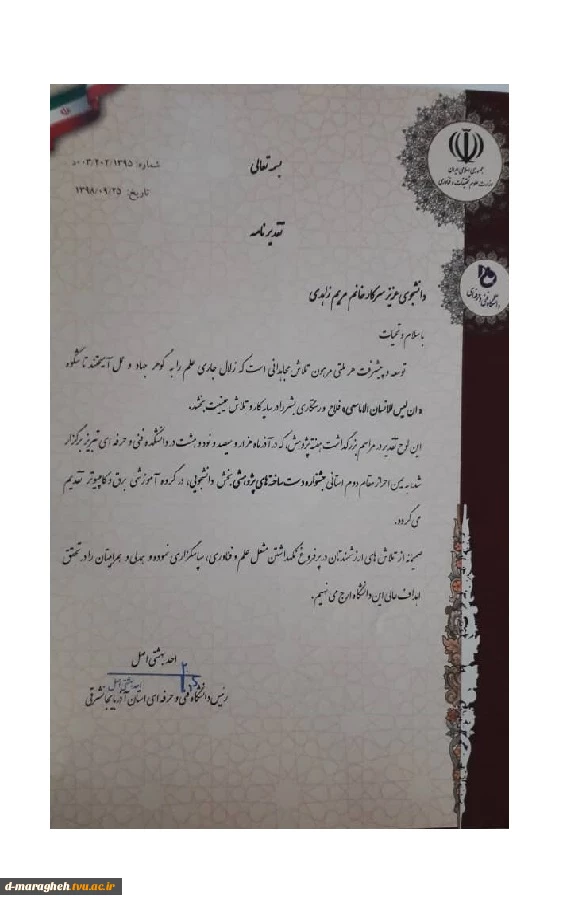 جمهوری اسلامی ایران
وزارت علوم تحقیقات و فناوری
دانشگاه فنی و حرفه‌ای
شماره: ۵۰۰۳/۲۰۲/۱۳۹۵د
تاریخ: ۱۳۹۸/۰۹/۲۵
بسمه تعالی
تقدیرنامه
دانشجوی عزیز سرکار خانم مریم زاهدی
با سلام و تحیات
توسعه و پیشرفت هر ملتی مرهون تلاش مجاهدانی است که زلال جاری علم را به گوهر جهاد و عمل آمیختند تا شکوه
«ان لیس للانسان الا ماسعی» فلاح و رستگاری بشر را در سایه کار و تلاش عینیت بخشد.
این لوح تقدیر در مراسم بزرگداشت هفته پژوهش، که در آذرماه هزار و سیصد و نود و هشت در دانشکده فنی و حرفه ای تبریز برگزار
شد، به یمن احراز مقام دوم استانی جشنواره دست ساخته های پژوهشی بخش دانشجویی، در گروه آموزشی برق و کامپیوتر تقدیم
می گردد.
صمیمانه از تلاش های ارزشمندتان در پر فروغ نگهداشتن مشعل علم و فناوری، سپاسگزاری نموده و همدلی و همراهیتان را در تحقق
اهداف عالی این دانشگاه ارج می نهیم.
احد بهشتی اصل
احد بهشتی اصل
رئیس دانشگاه فنی و حرفه ای استان آذربایجانشرقی
d-maragheh.tvu.ac.ir